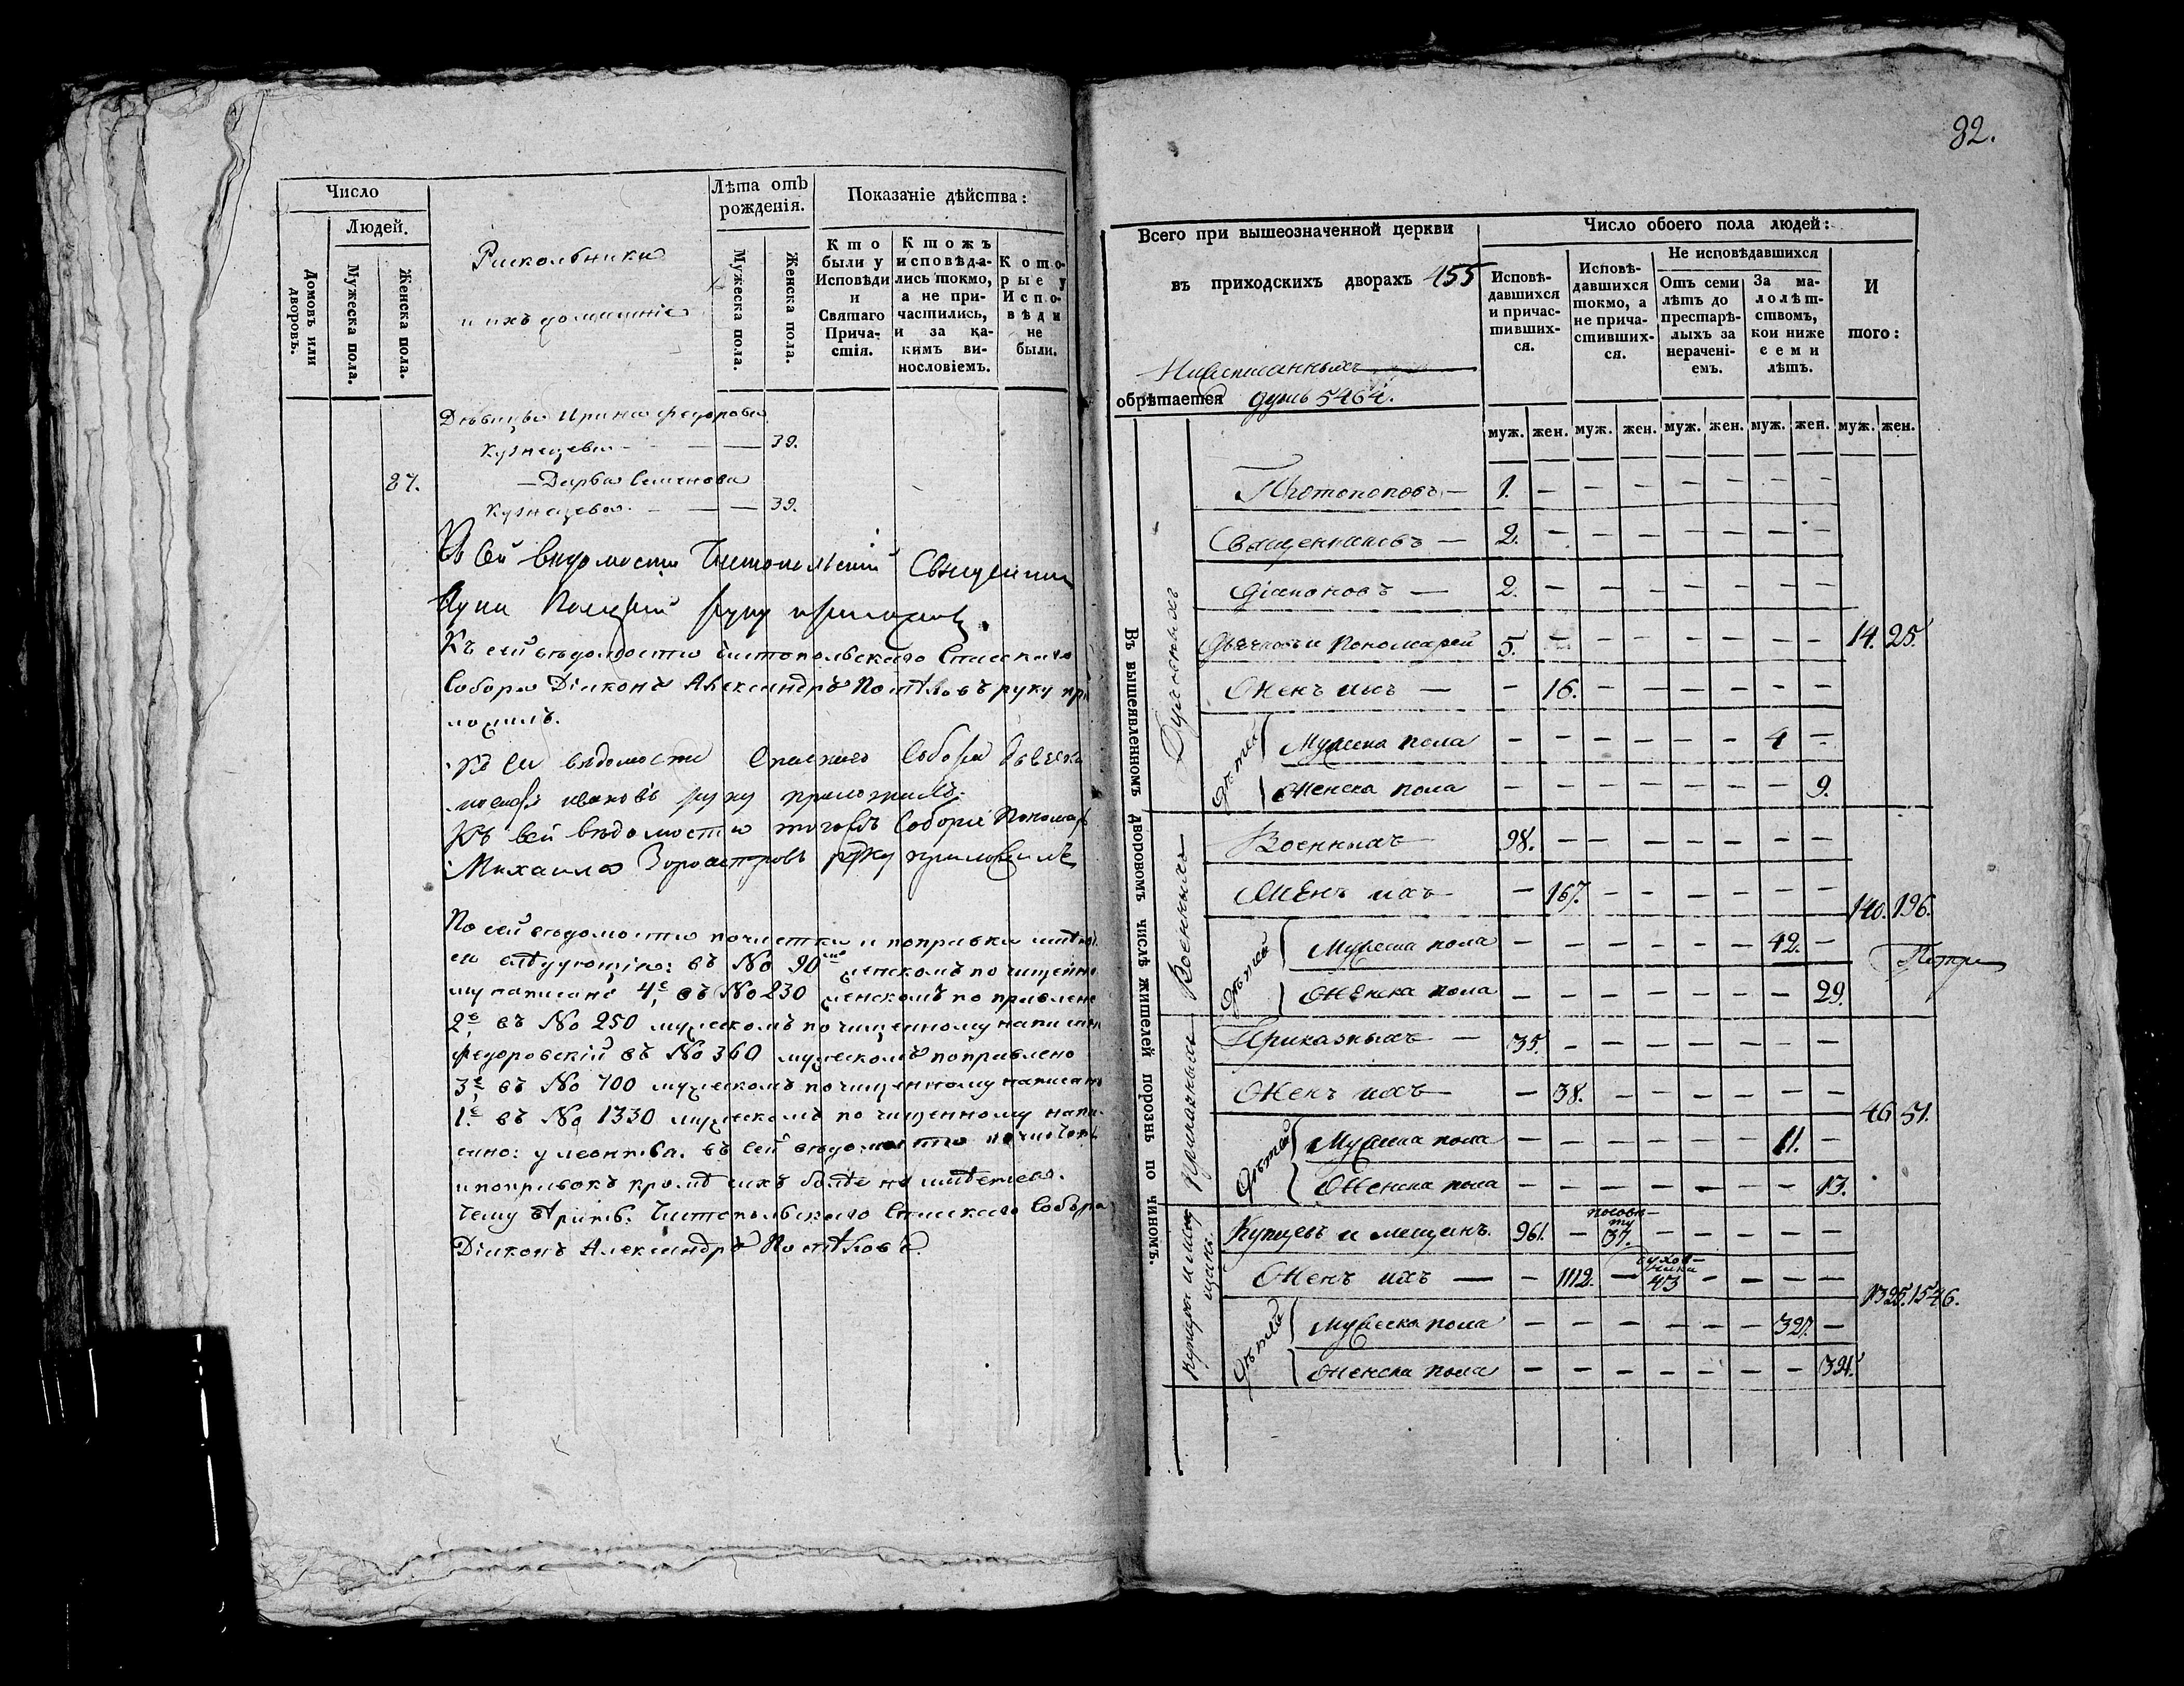 Число
Людей.
Домовъ или дворовъ.
Мужеска пола.
Женска пола.
Раскольники
и ихъ домашніе
Лѣта отъ
рожденія.
Мужеска пола.
Женска пола.
Показаніе дѣйства:
Кто
были у
Исповѣди
и
Святаго
Прича-
стія.
Ктожъ
исповѣда-
лись токмо,
а не при-
частились,
и за ка-
кимъ ви-
нословіемъ.
Кото-
рые у
Испо-
вѣди
не
были.
Дѣвица Ирина Федорова
Кузнецева — — 39.
87. — Дарья Семенова
Кузнецева — — 39.
Къ сей ведомости Чистопольскій Священник
руку приложилъ.
Къ сей вѣдомости Чистопольскаго Спаскаго
Собора Діаконъ Александръ руку при
ложилъ.
Къ сей вѣдомости Спаскаго Собора
ивановъ руку приложилъ.
Къ сей вѣдомости тогожъ Собора Пономарь
Михаила руку приложилъ
По сей вѣдомости почистки и поправки имѣют
ся слѣдующіе: въ № 90 женскомъ по чищенно
му написано 4, въ № 230 женскомъ поправлено
2, въ № 250 мужескомъ по чищенному написан
Федоровскій въ № 360 мужескомъ поправлено
3, въ № 700 мужескомъ по чищенному написано
1. въ № 1330 мужескомъ по чищенному напи-
сано: у леонтьва. въ сей вѣдомости почистокъ
и поправокъ кромѣ сихъ болѣе не имѣется.
Чему Чистопольскаго Спаскаго Собора
Діаконъ Александръ
82.
Всего при вышеозначенной церкви
въ приходскихъ дворахъ 455
Нижеписанныхъ
обрѣтается душъ 5464.
Число обоего пола людей:
Исповѣ-
давшихся
и причас-
тивших-
ся.
Исповѣ-
давшихся
токмо, а
не прича-
стивших-
ся.
Не исповѣдавшихся
Отъ семи
лѣтъ до
престарѣ-
лыхъ за
нерачені-
емъ.
За ма-
лолѣт-
ствомъ,
кои ниже
семи
лѣтъ.
И
того:
муж. жен. муж. жен. муж. жен. муж. жен. муж. жен.
Въ вышеявленномъ дворовомъ числѣ жителей порознь по чиномъ.
Духовныхъ
Протопоповъ — 1. — — — — — — —
Священниковъ — 2. — — — — — —
Діаконовъ — 2. — — — — — — —
Дьячковъ и Пономарей 5. — — — — — — — 14. 25.
Женъ ихъ — — 16. — — — — — —
Дѣтей
Мужеска пола — — — — — — 4 —
Женска пола — — — — — — — 9.
Военныхъ
Военныхъ — 98. — — — — — — —
Женъ ихъ — — 167. — — — — — — 140. 196.
Дѣтей
Мужеска пола — — — — — — 42. —
Женска пола — — — — — — — 29.
Приказныхъ
Приказныхъ — 35. — — — — — — —
Женъ ихъ — — 38. — — — — — — 46 51.
Дѣтей
Мужеска пола — — — — — — 11. —
Женска пола — — — — — — — 13.
Купцовъ и мещанъ. 961. — посовѣ-
ту
37. — — — — —
Женъ ихъ — — 1112. — духов-
ника
43 — — — — 1325. 1546.
Дѣтей
Мужеска пола — — — — — — 327. —
Женска пола — — — — — — — 391.